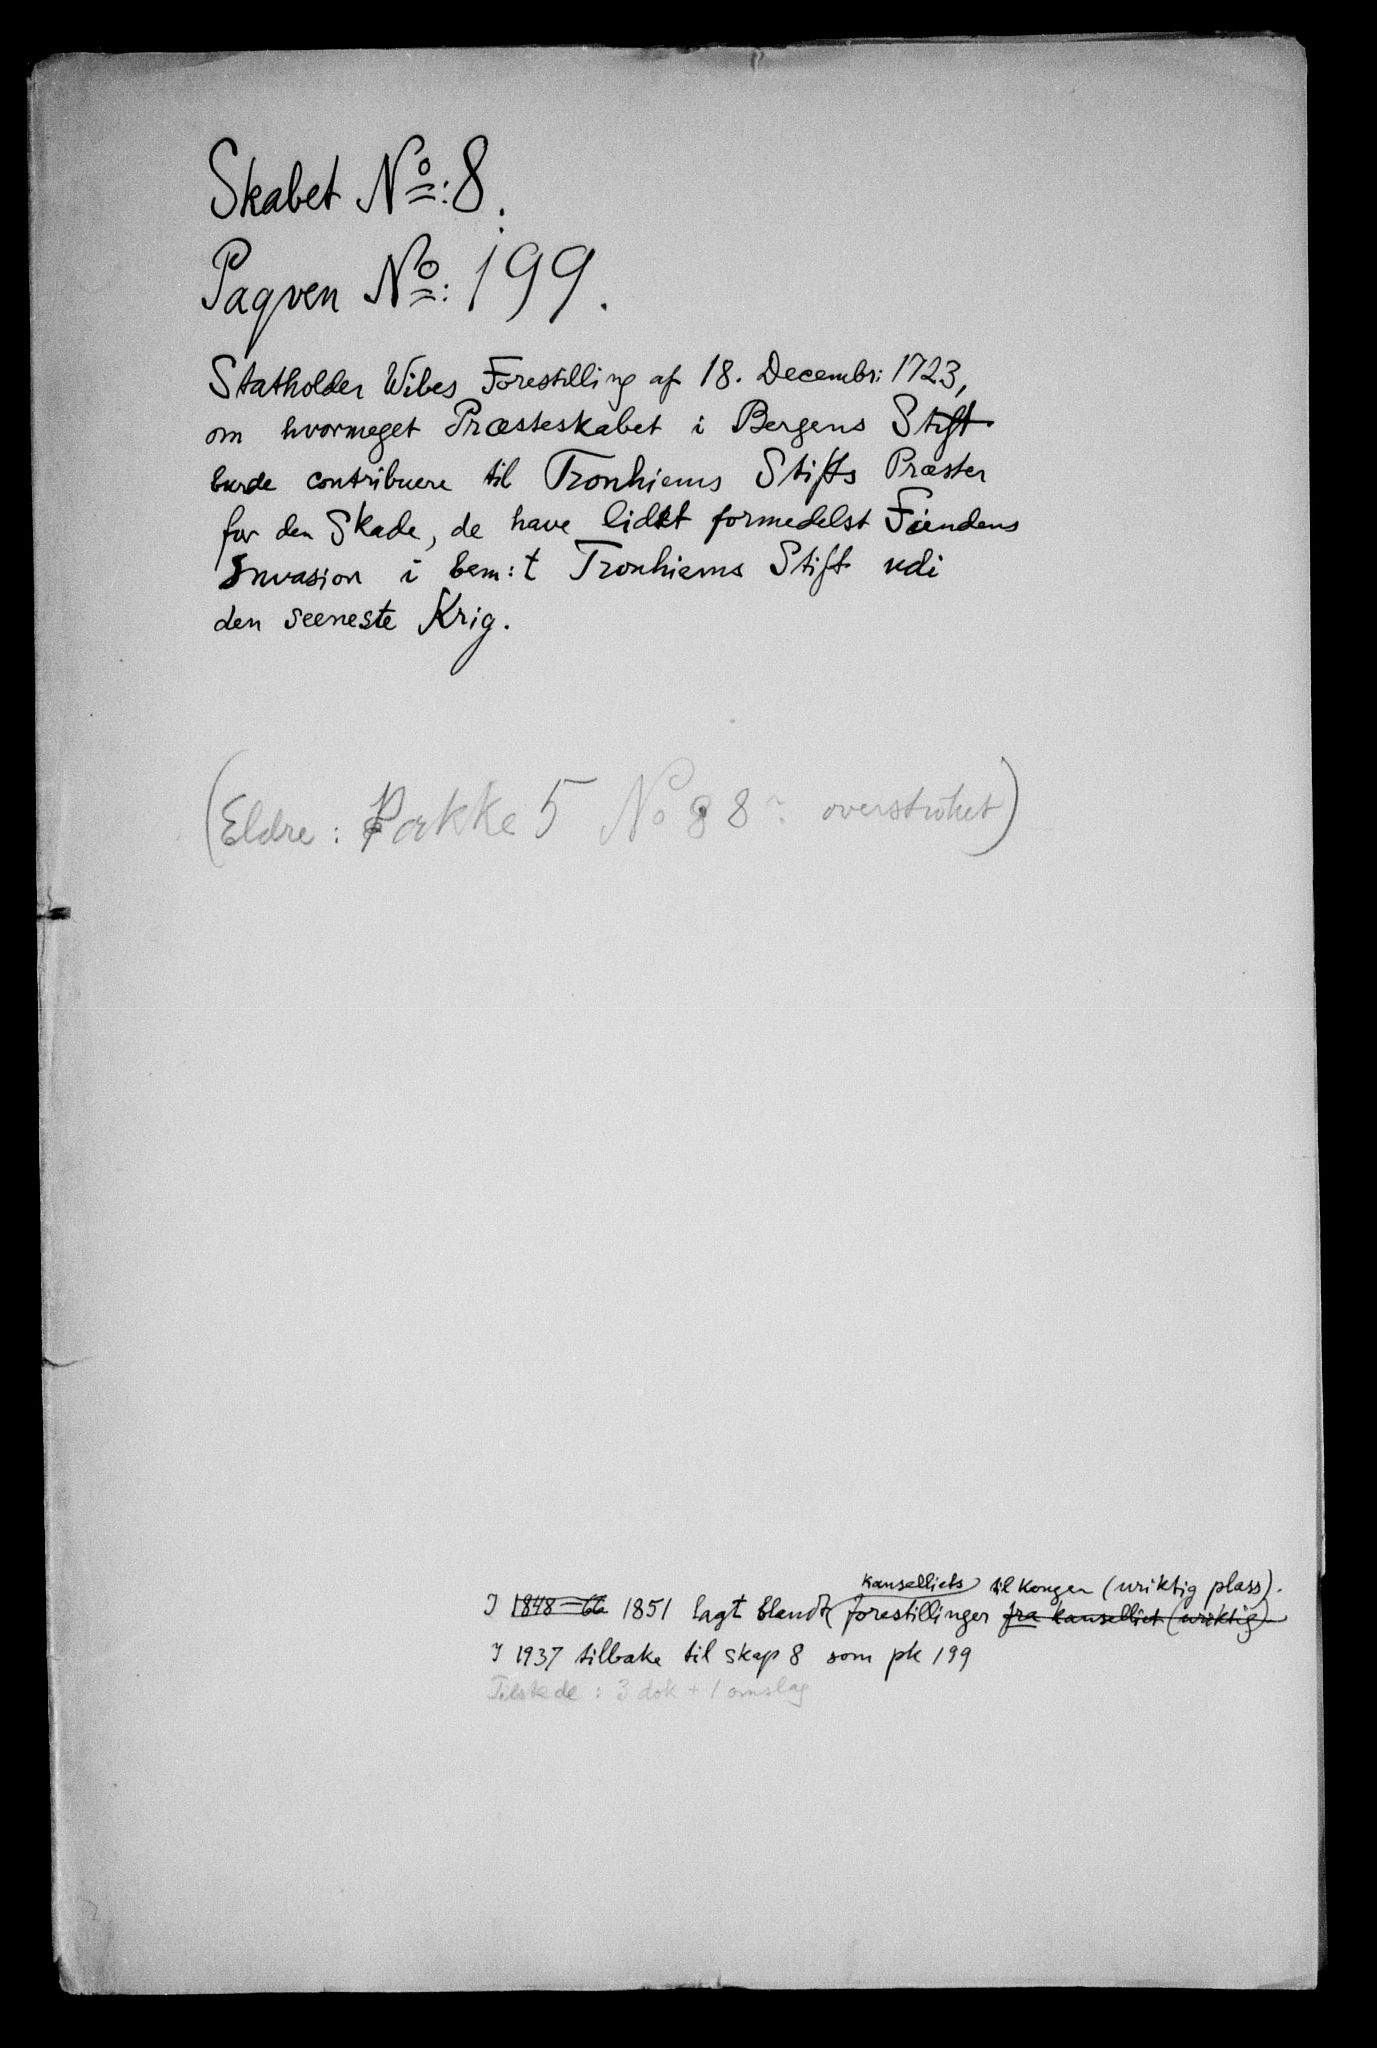 Skabet No: 8.
Paqven No: 199.
Statholder Wibes Forestilling af 18. Decembr: 1723,
om hvormeget Præsteskabet i Bergens Stift
burde contribuere til Tronhiems Stifts Præster
for den Skade, de have lidet formedelst Fiendens
Invasion i bem:t Tronhiems Stift udi
den seeneste Krig.
(Eldre: Pakke 5 No 88 overstrøket)
kanselliets til kongen (uriktig plass).
I 1848-66 1851 lagt blandt forestillinger fra kanselliet (uriktig
I 1937 tilbake til skap 8 som pk 199
Tilstede: 3 dok + 1 omslag